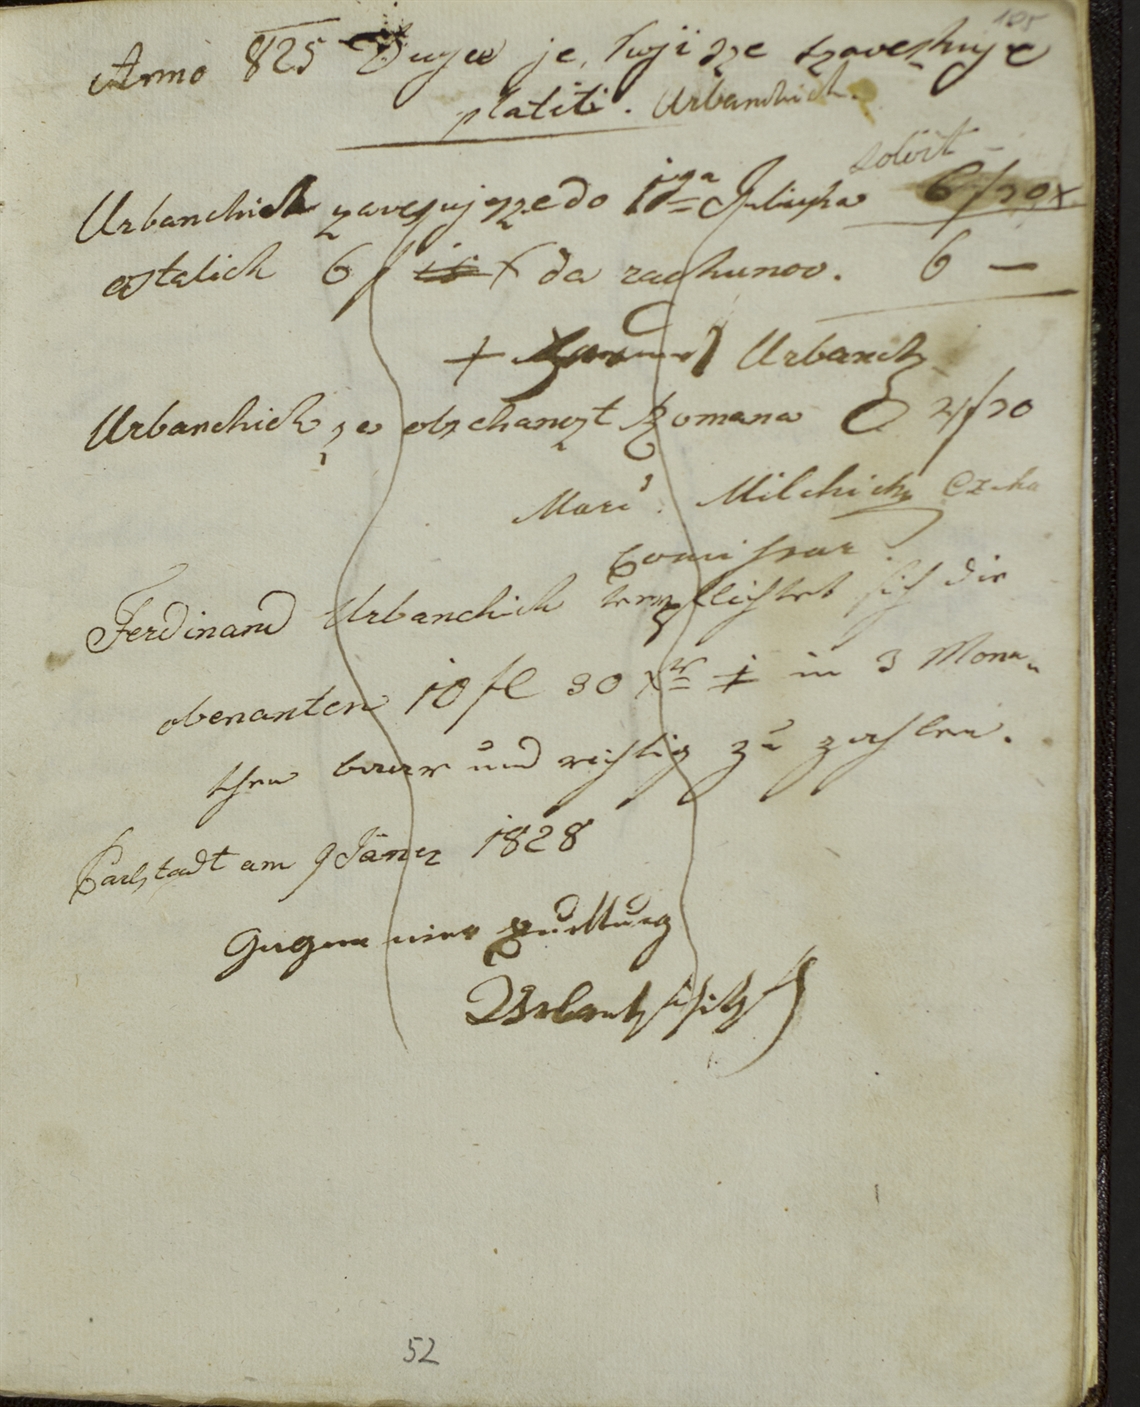 105
Anno 825 Dugue je, koji sze zaveshuje
platiti. Urbanchich.
solvit
Urbanchich zavezuje sze do 1ga Juliusha 6f 20x
ostalich 6 f x da rachunov. 6 —
+ Urbanch
Urbanchich ze obchanczt Romana 4f 20
Mari. Milchich
Comissar
Ferdinand Urbanchich verpflichtet sich die
obenanten 10 fl 30 xr in 3 Mona
then baar und richtig zu zahlen.
Carlstadt am 9 Jäner 1828
Gegen eine Quittung
Urbantschitsch
52